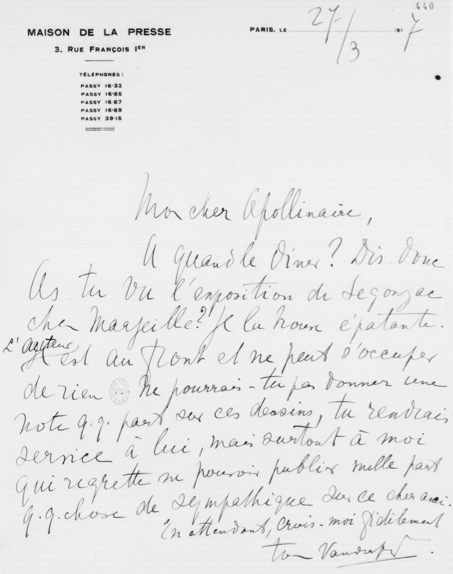 440
MAISON DE LA PRESSE
3. RUE FRANÇOIS IER
PARIS, LE 27/3 1917
TÉLÉPHONES:
PASSY 16-32
PASSY 16-85
PASSY 16-87
PASSY 16-89
PASSY 39-15
Mon cher Apollinaire,
A quand le diner? Dis donc
As tu vu l'exposition de Segonzac
chez Marseille? Je la trouve épatante.
L'auteur est au front et ne peut s'occuper
de rien ne pourrais-tu pas donner une
note q.q. part sur ces dessins, tu rendrais
service à lui, mais surtout à moi
qui regrette ne pouvoir publier nulle part
q.q. chose de sympathique sur ce cher ami.
En attendant, crois-moi fidèlement
ton